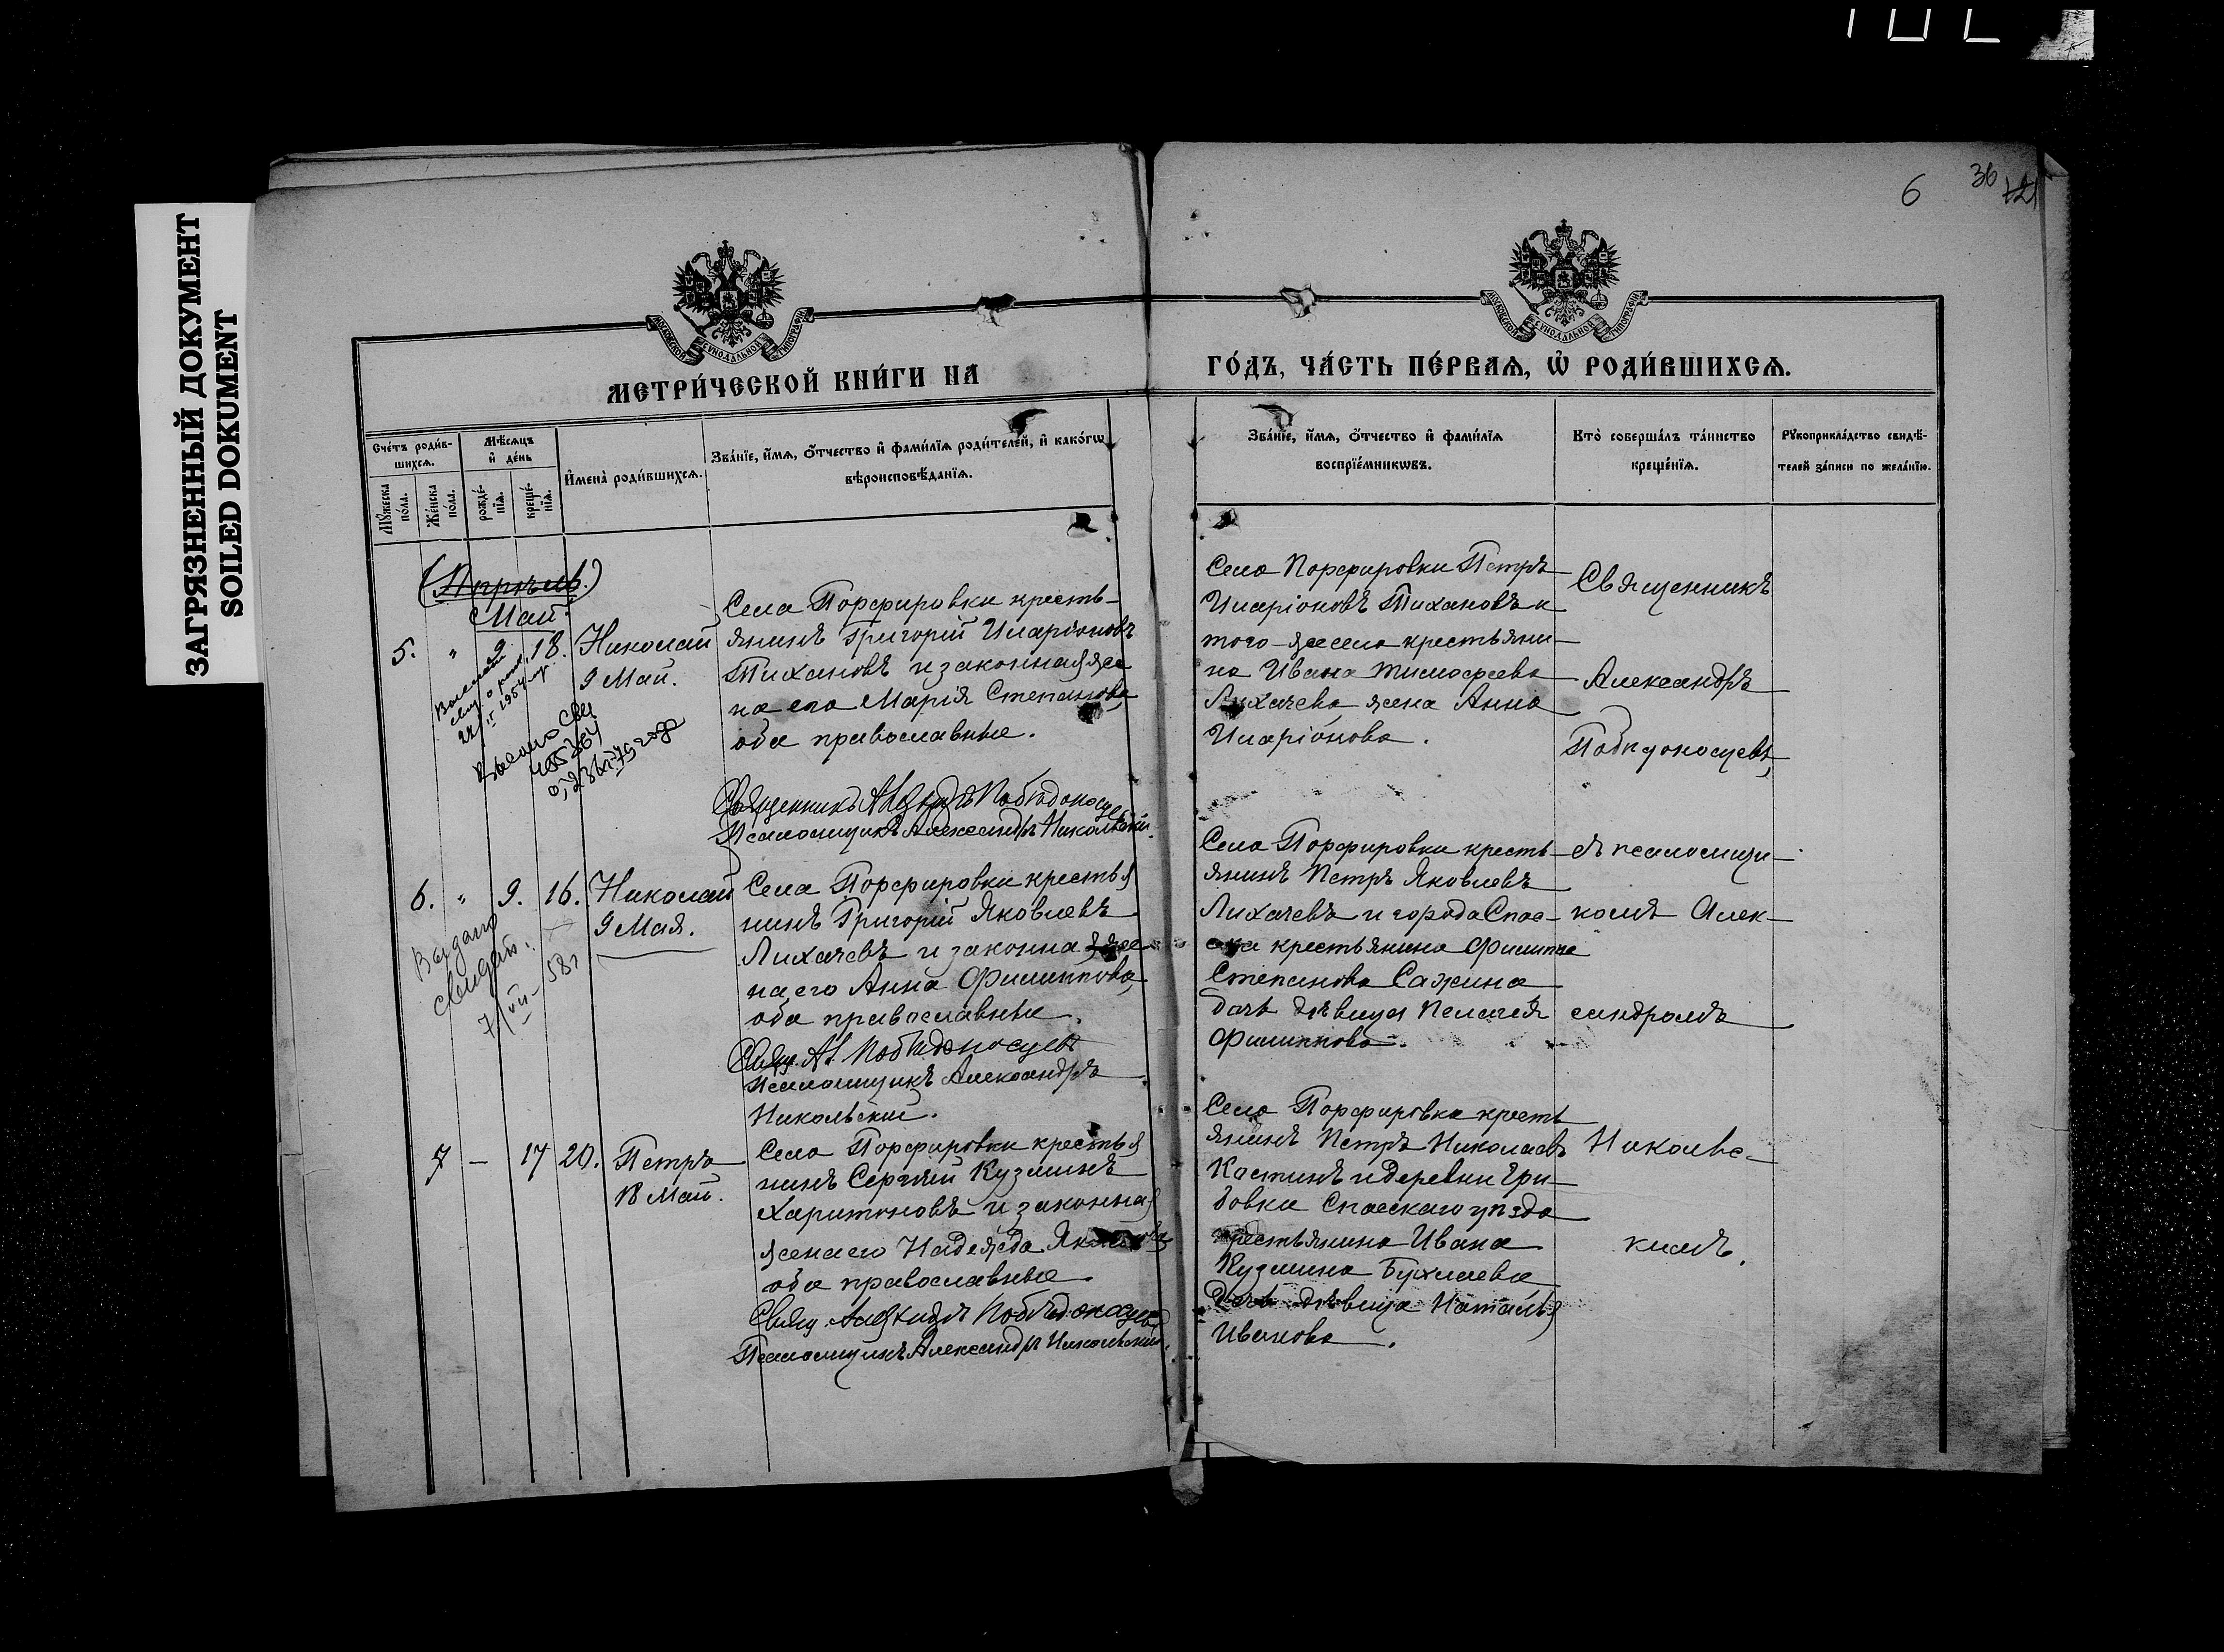 ЗАГРЯЗНЕННЫЙ ДОКУМЕНТ
SOILED DOKUMENT
6
36
МОСКОВСКОЙ СѴНОДАЛЬНОЙ ТИПОГРАФІИ
МОСКОВСКОЙ СѴНОДАЛЬНОЙ ТИПОГРАФІИ
МЕТРИ́ЧЕСКОЙ КНИ́ГИ НА
ГО́ДЪ, ЧА́СТЬ ПЕ́РВАѦ, Ѽ РОДИ́ВШИХСѦ.
Сче́тъ роди́в-
шихсѧ.
Мꙋ́жеска
по́ла.
Же́нска
по́ла.
Мѣ́сѧцъ
и҆ де́нь
рожде́-
нїѧ.
креще́-
нїѧ.
И҆мена̀ роди́вшихсѧ.
Зва́нїе, и҆́мѧ, ѻ҆́тчество и҆ фами́лїѧ роди́телей, и҆ како́гѡ
вѣроисповѣ́данїѧ.
Зва́нїе, и҆́мѧ, ѻ҆́тчество и҆ фами́лїѧ
воспрїе́мникѡвъ.
Кто̀ соверша́лъ та́инство
креще́нїѧ.
Рꙋкоприкла́дство свидѣ́-
телей за́писи по жела́нїю.
(Апрѣль.)
Май.
5. " 9. 18. Николай
9 Май.
Села Порфировки кресть-
янинъ Григорій Иларіоновъ
Тихановъ и законная же
на его Марія Степанова,
оба православные.
Священникъ Александръ Победоносцевъ
Псаломщикъ Александръ Никольскій.
Села Порфировки Петръ
Иларіоновъ Тихановъ и
того-же села крестьяни-
на Ивана Тимофеева
Лихачева жена Анна
Иларіонова.
Священникъ
Александръ
Победоносцевъ,
6. " 9. 16. Николай
9 Мая.
Выдано
свидет.
7/VII-58г
Села Порфировки крестья
нинъ Григорій Яковлевъ
Лихачевъ и законная же
на его Анна Филиппова,
оба православные.
Свящ. Ал. Победоносцевъ
Псаломщикъ Александръ
Никольскій.
Села Порфировки кресть-
янинъ Петръ Яковлевъ
Лихачевъ и города Спас-
ска крестьянина Филиппа
Степанова Сажина
дочь дѣвица Пелагія
Филиппова.
съ псаломщи-
комъ Алек-
сандромъ
7 - 17 20. Петръ
18 Май.
Села Порфировки крестья
нинъ Сергѣй Кузминъ
Харитоновъ и законная
жена его Надежда
оба православные.
Свящ. Александръ Победоносцевъ
Псаломщикъ Александръ Никольскій.
Села Порфировки кресть
янинъ Петръ Николаевъ
Костинъ и деревни Гри-
бовки Спасскаго уѣзда
крестьянина Ивана
Кузмина
дочь дѣвица Наталья
Иванова.
Никольс-
кимъ.